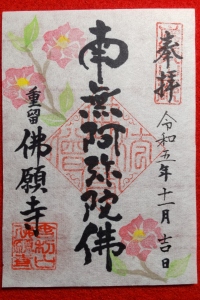 奉拝
令和五年十一月吉日
南無阿弥陀佛
重留
佛願寺